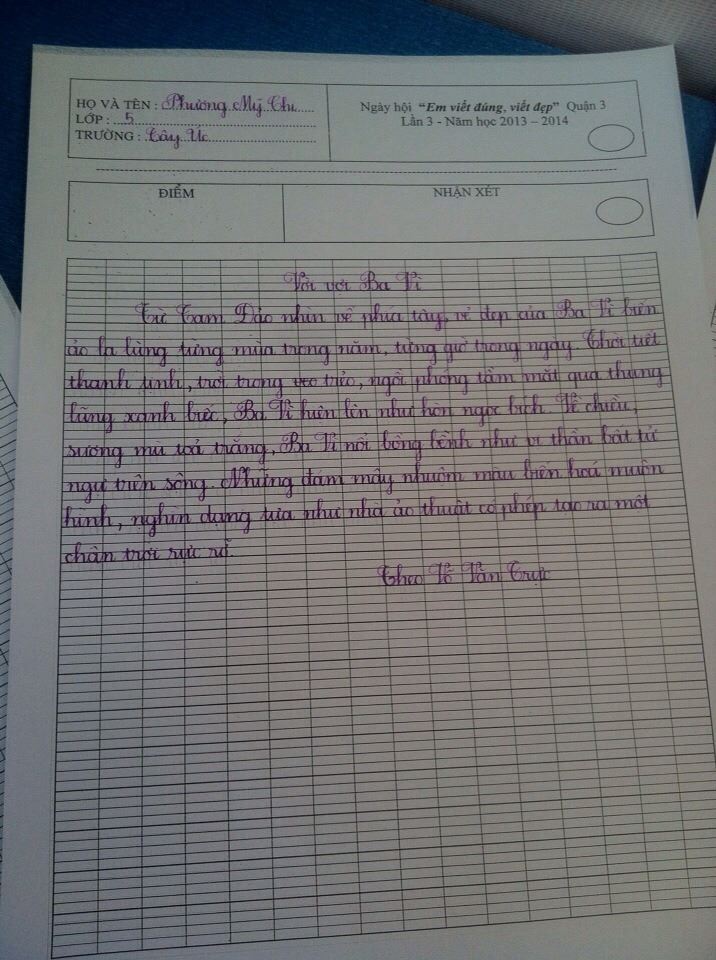 HỌ VÀ TÊN : Phương Mỹ Chi
LỚP : 5
TRƯỜNG : Tây Úc
Ngày hội "Em viết đúng, viết đẹp" Quận 3
Lần 3 - Năm học 2013 – 2014
ĐIỂM
NHẬN XÉT
Vời vợi Ba Vì
Từ Tam Đảo nhìn về phía tây, vẻ đẹp của Ba Vì biến
ảo lạ lùng từng mùa trong năm, từng giờ trong ngày. Thời tiết
thanh tịnh, trời trong veo trẻo, ngồi phóng tầm mắt qua thung
lũng xanh biếc, Ba Vì hiện lên như hòn ngọc bích. Về chiều,
sương mù toả trắng, Ba Vì nổi bồng bềnh như vị thần bất tử
ngự trên sóng. Những đám mây nhuộm màu biến hoá muôn
hình, nghìn dạng tựa như nhà ảo thuật có phép tạo ra một
chân trời rực rỡ.
Theo Võ Văn Trực